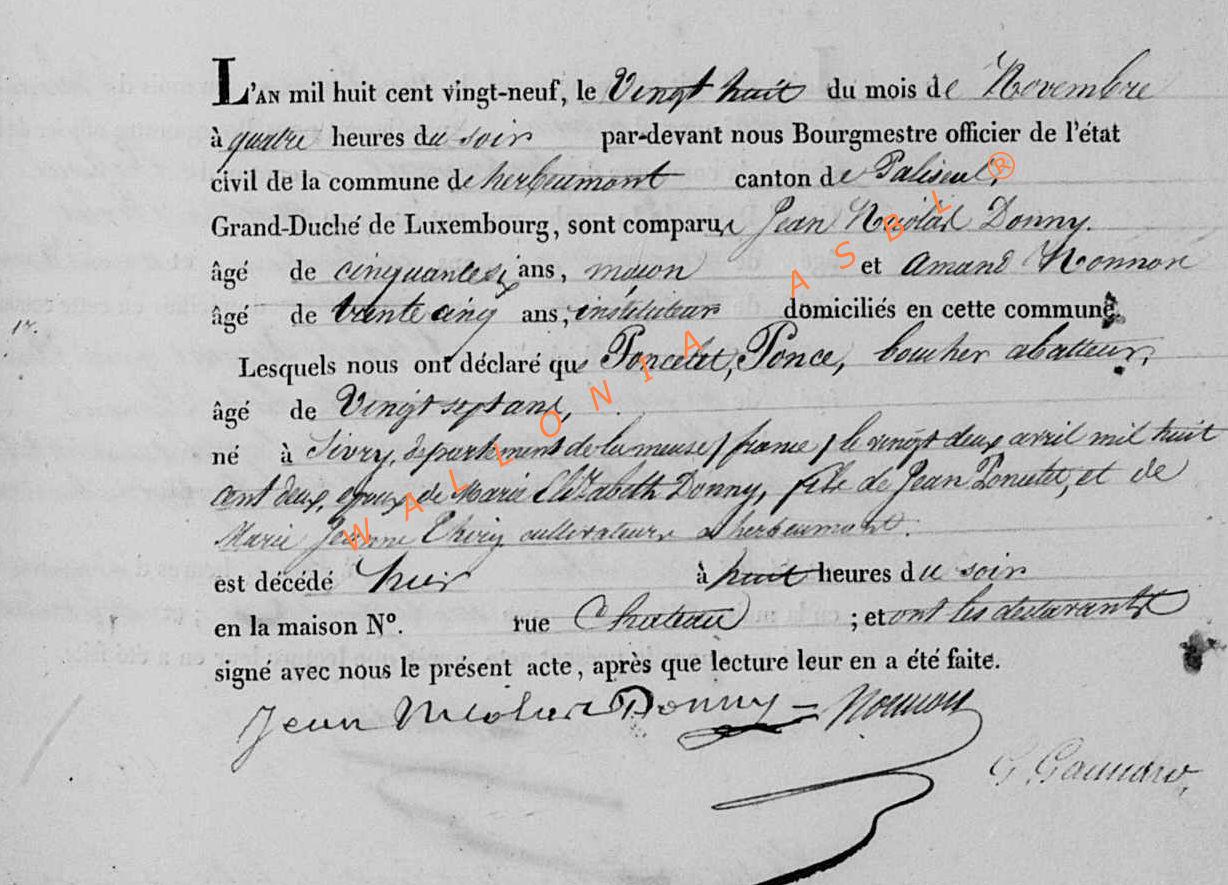 L'AN mil huit cent vingt-neuf, le Vingt huit du mois de Novembre
à quatre heures du soir par-devant nous Bourgmestre officier de l'état
civil de la commune de herbeumont canton de Paliseul,
Grand-Duché de Luxembourg, sont comparus Jean Nicolas Donny
âgé de cinquante six ans, maçon et Amand Nonnon
âgé de trente cinq ans, instituteur domiciliés en cette commune.
17.
Lesquels nous ont déclaré que Poncelet, Ponce, boucher abatteur,
âgé de Vingt sept ans,
né à Sivry, département de la meuse / france / le vingt deux avril mil huit
cent deux, epoux de Marie Elizabeth Donny, fils de Jean Poncelet, et de
Marie Jeanne Thiry cultivateurs a herbeumont.
est décédé hier à huit heures du soir
en la maison N°. rue Chateau ; et ont les déclarants
signé avec nous le présent acte, après que lecture leur en a été faite.
Jean Nicolas Donny Nonnon
WALLONIA ASBL ®